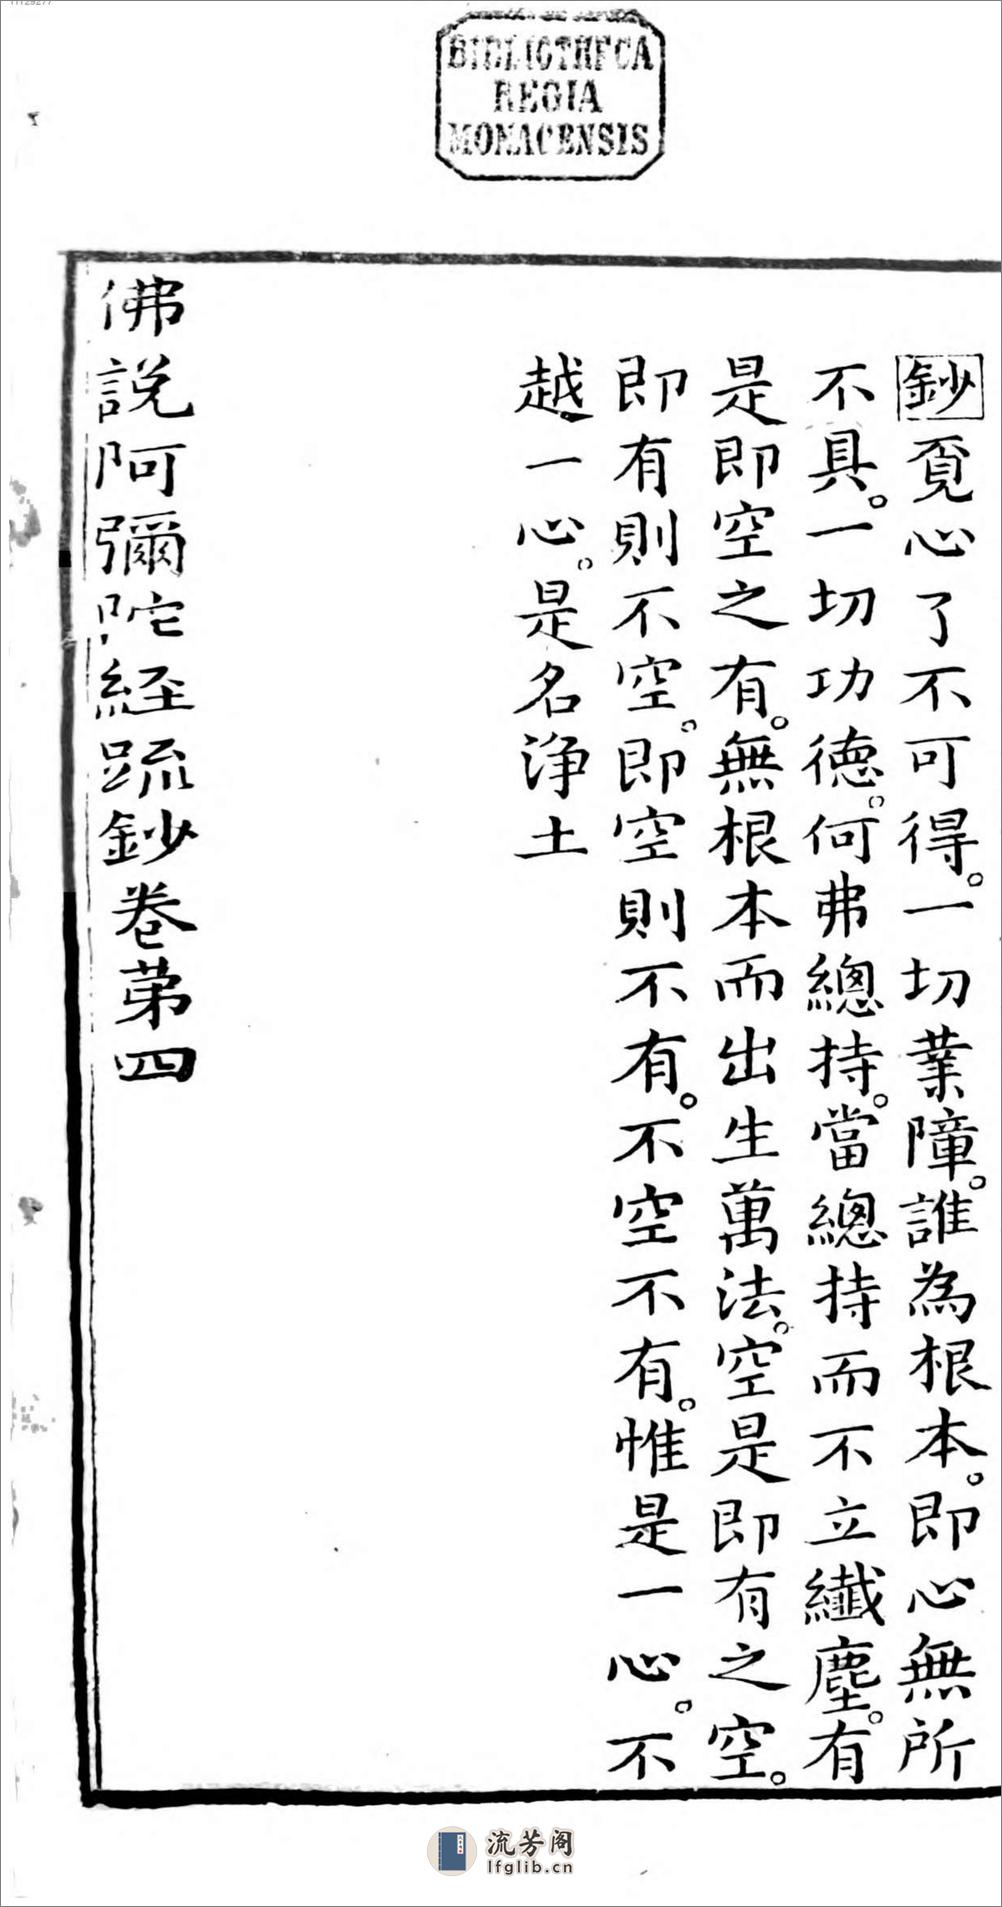 11129277
BIBLIOTHECA
REGIA
MONACENSIS
鈔覓心了不可得。一切業障。誰為根本。即心無所
不具。一切功德。何弗總持。當總持而不立纖塵。有
是即空之有。無根本而出生萬法。空是即有之空。
即有則不空。即空則不有。不空不有。惟是一心。不
越一心。是名浄土
佛說阿彌陀經疏鈔卷苐四
流芳阁
lfglib.cn